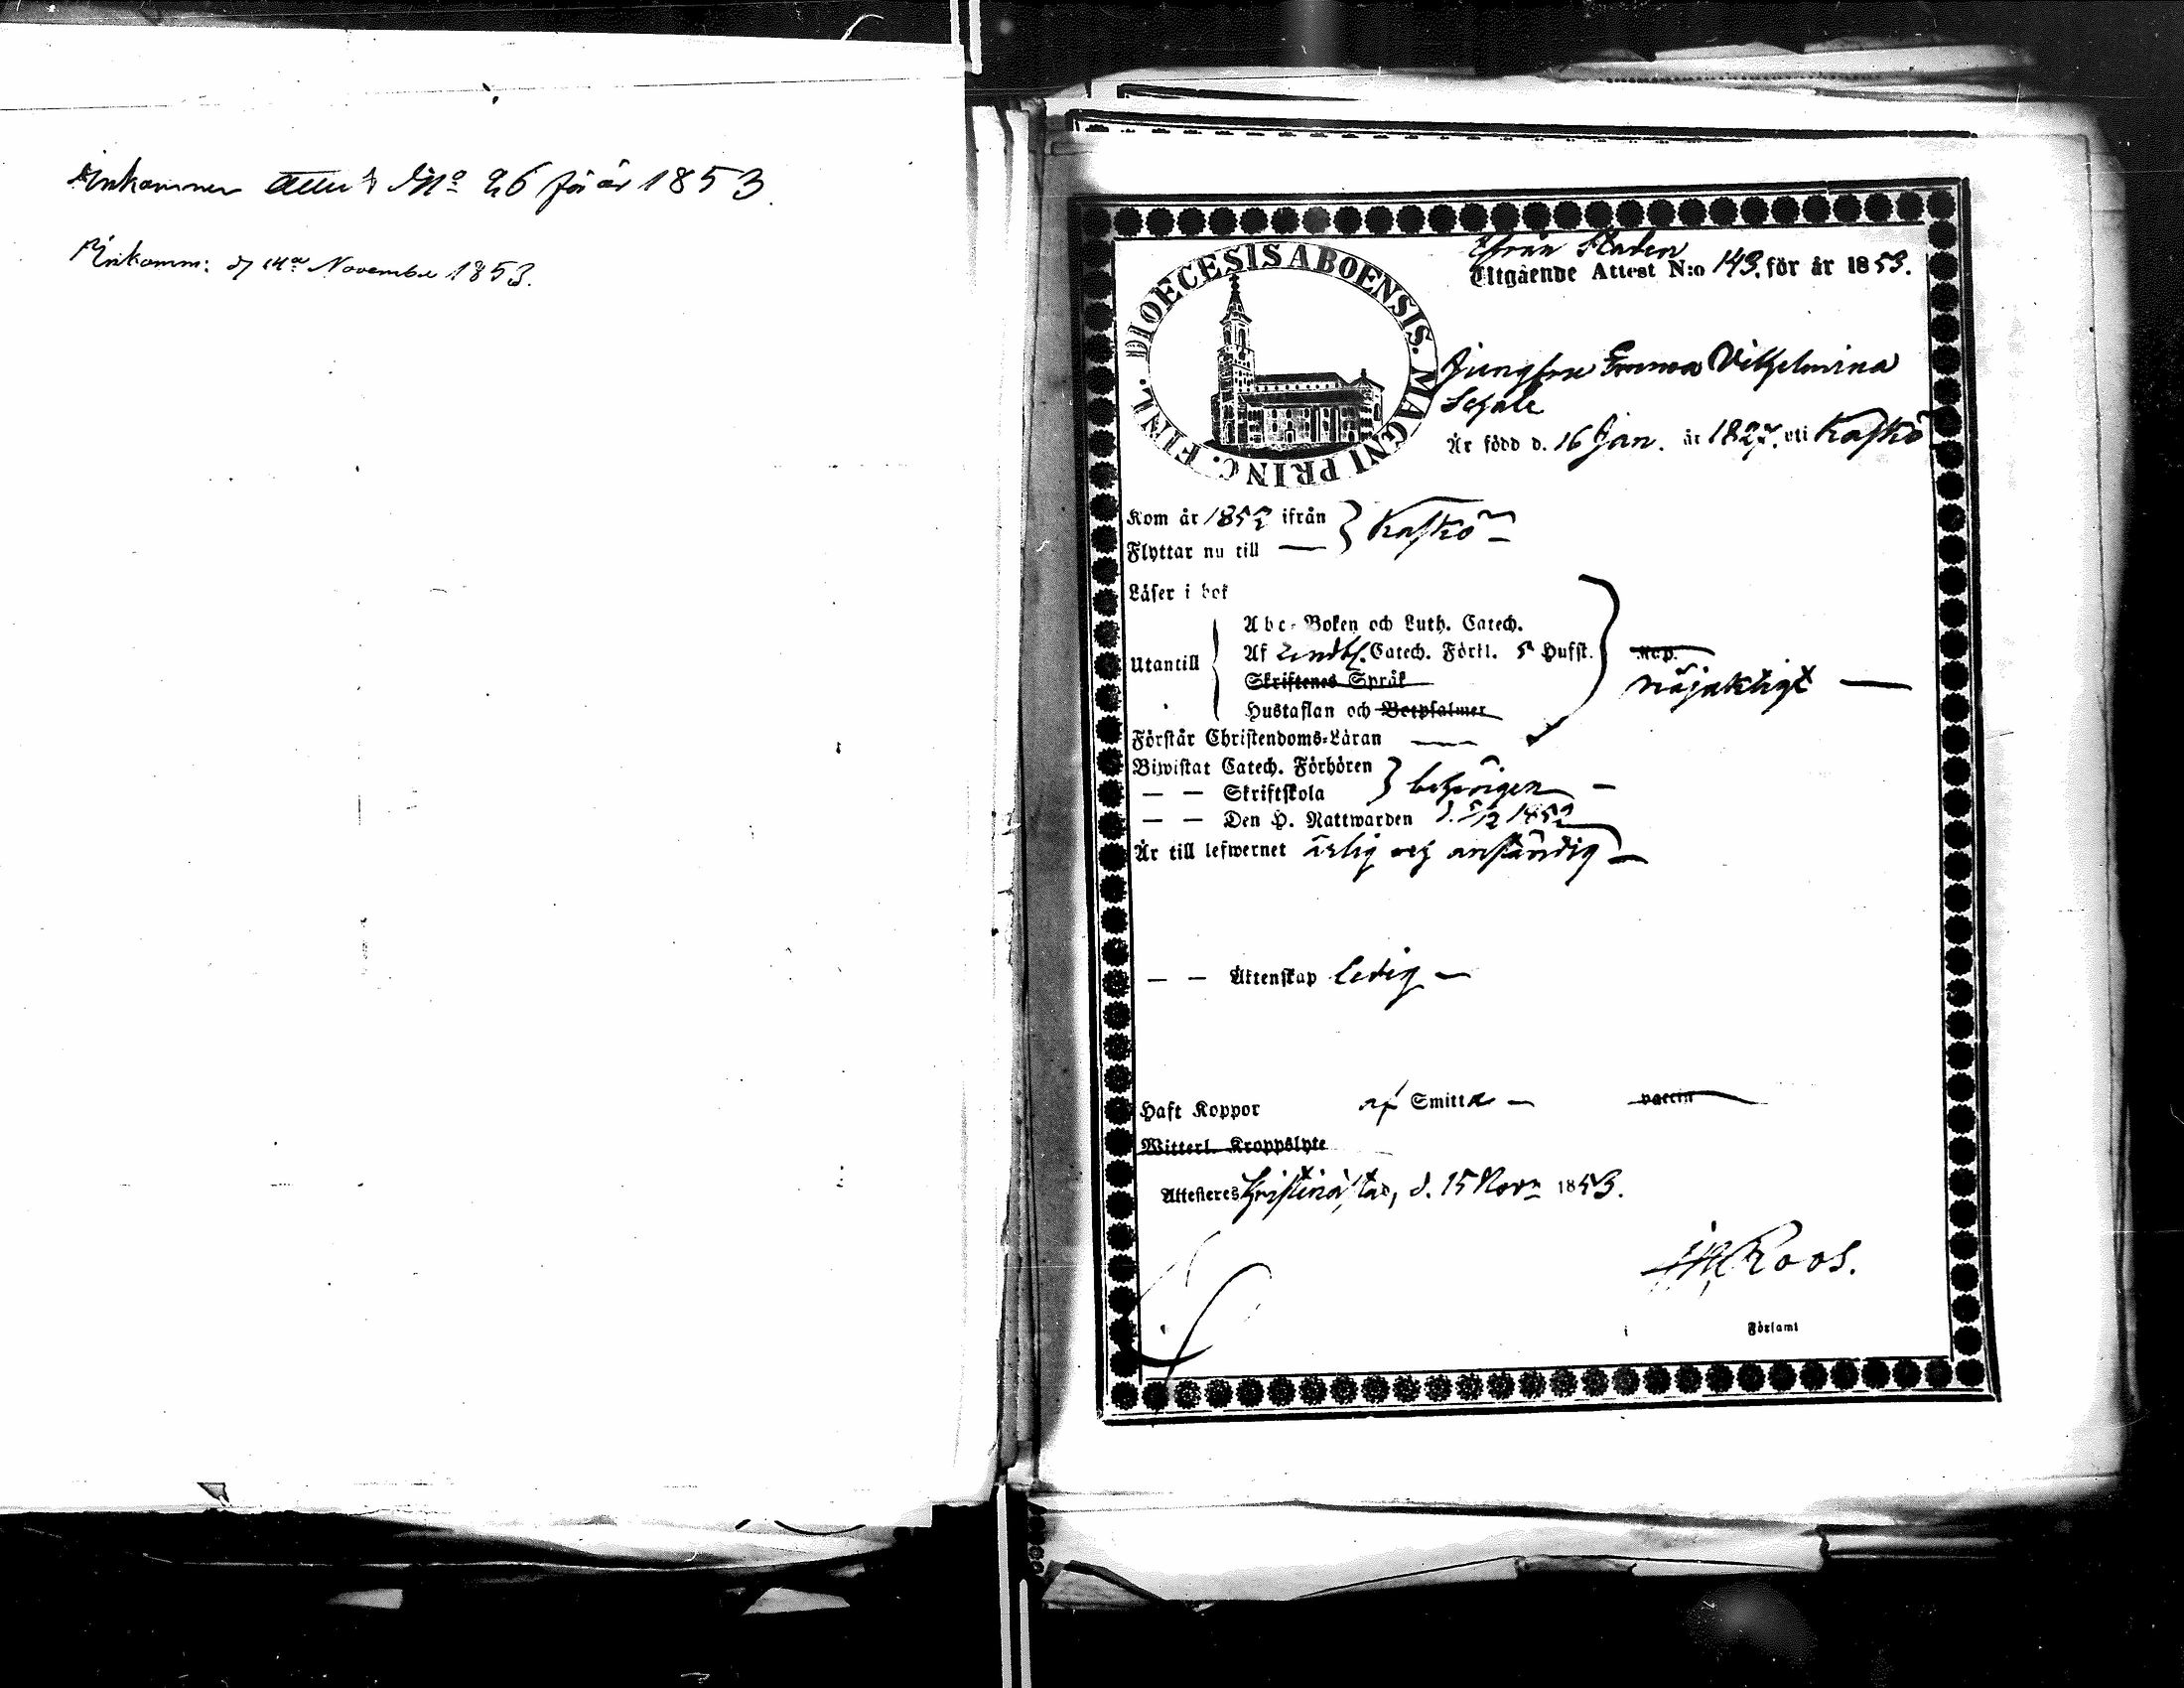 Inkommen Attest No 26 för år 1853.
Inkomm: d 14de November 1853.
DIOECESIS ABOENSIS. MAGNI PRINC. FINL.
Ifrån Staden
Utgående Attest N:o 143, för år 1853.
Jungfru Emma Vilhelmina
Är född d. 16 Jan. år 1827. uti Kaskö
Kom år 1852 ifrån } Kaskö
Flyttar nu till —
Läser i bok
Abc-Boken och Luth. Catech.
Utantill Af Lindbl. Catech. Förkl. 5 Hufst.
Skriftenes Språk
nöjaktigt —
Hustaflan och Botpsalmer
Förstår Christendoms-Läran —
Biwistat Catech. Förhören
— — Skriftskola } behörigen —
— — Den H. Nattwarden d. 5/12 1852
Är till lefwernet ärlig och anständig —
— — Äktenskap ledig —
Haft Koppor af Smitta — vaccin
Witterl. Kroppslyte
Attesteres Kristinæstad, d. 15 Novr 1853.
Roos.
i Församl